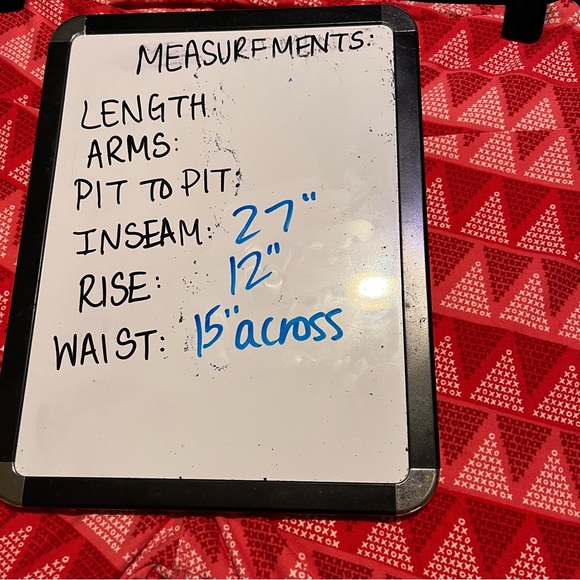 MEASUREMENTS:
LENGTH:
ARMS:
PIT TO PIT:
INSEAM: 27"
RISE: 12"
WAIST: 15" across